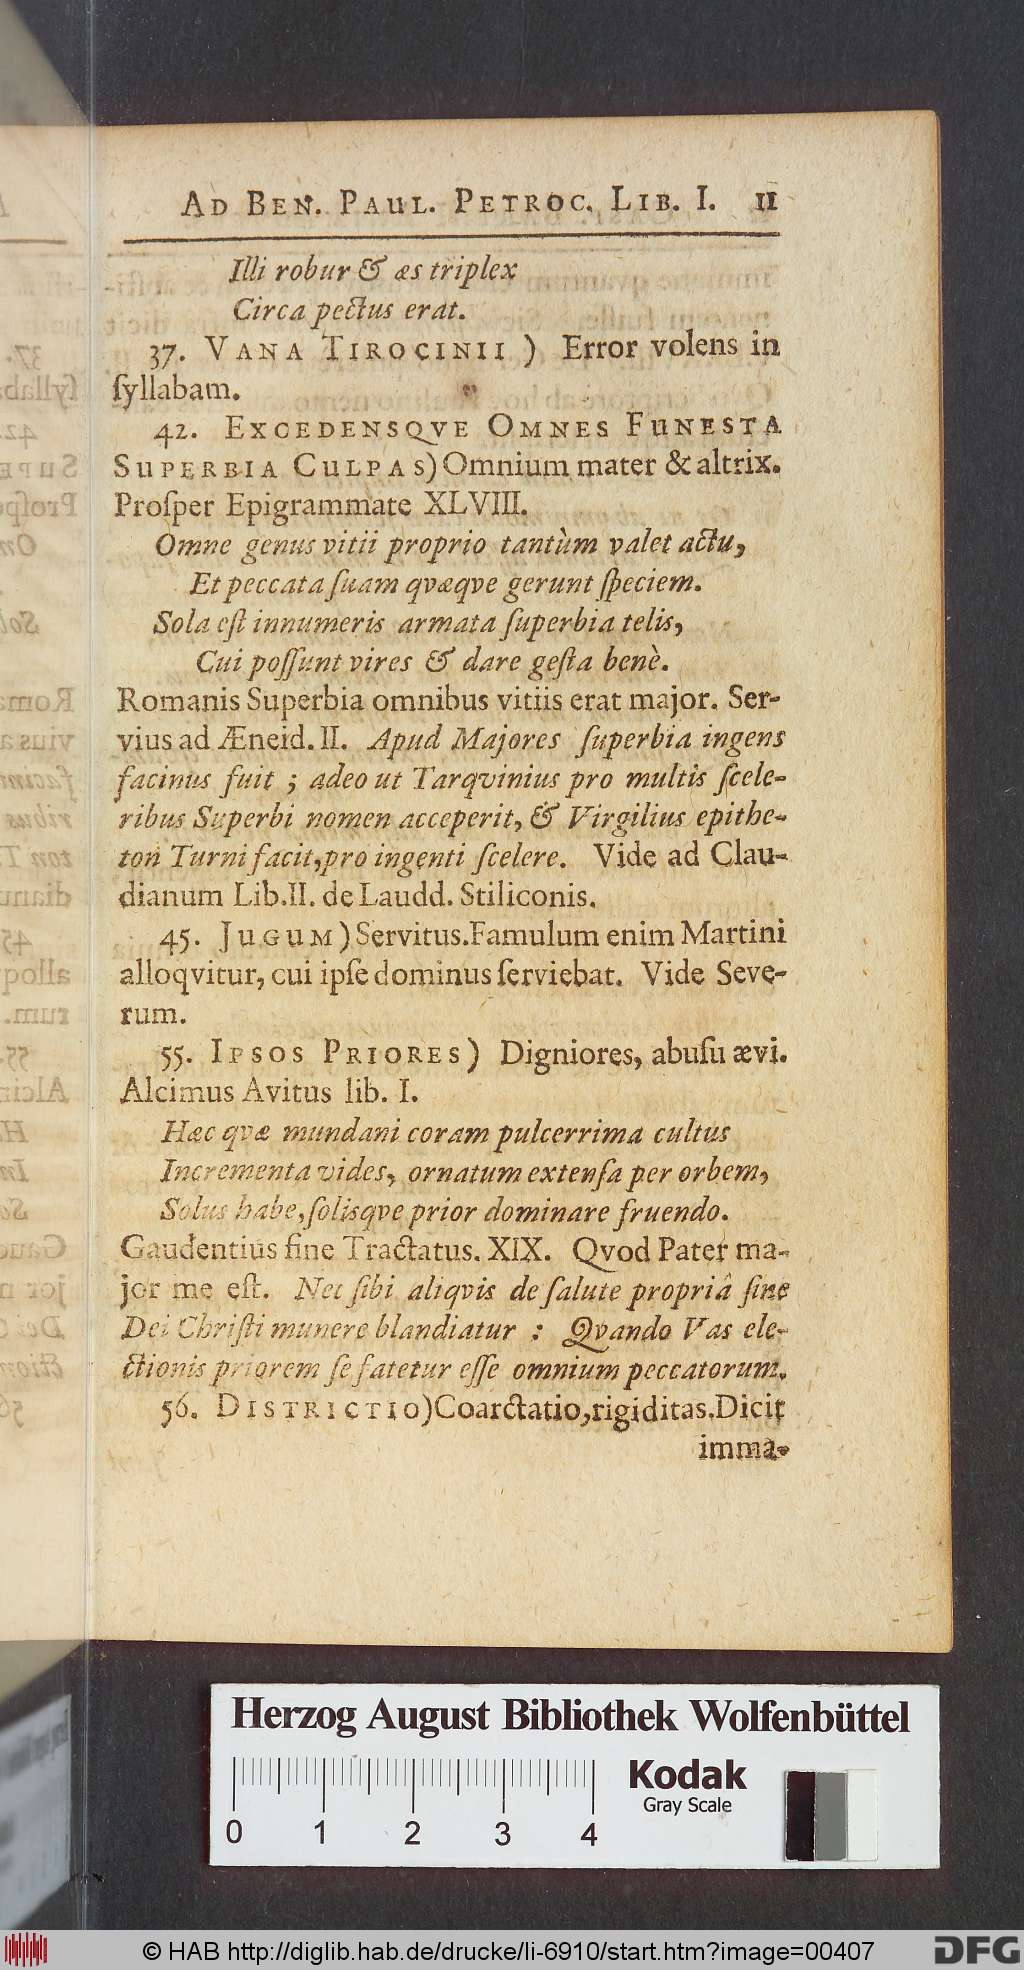 AD BEN. PAUL. PETROC. LIB. I. 11
Illi robur & æs triplex
Circa pectus erat.
37. VANA TIROCINII ) Error volens in
ſyllabam.
42. EXCEDENSQVE OMNES FUNESTA
SUPERBIA CULPAS) Omnium mater & altrix.
Proſper Epigrammate XLVIII.
Omne genus vitii proprio tantùm valet actu,
Et peccata ſuam qvæqve gerunt ſpeciem.
Sola eſt innumeris armata ſuperbia telis,
Cui poſſunt vires & dare geſta benè.
Romanis Superbia omnibus vitiis erat major. Ser-
vius ad Æneid. II. Apud Majores ſuperbia ingens
facinus fuit ; adeo ut Tarqvinius pro multis ſcele-
ribus Superbi nomen acceperit, & Virgilius epithe-
ton Turni facit, pro ingenti ſcelere. Vide ad Clau-
dianum Lib. II. de Laudd. Stiliconis.
45. JUGUM ) Servitus. Famulum enim Martini
alloqvitur, cui ipſe dominus ſerviebat. Vide Seve-
rum.
55. IPSOS PRIORES) Digniores, abuſu ævi.
Alcimus Avitus lib. I.
Hæc qvæ mundani coram pulcerrima cultus
Incrementa vides, ornatum extenſa per orbem,
Solus habe, ſolisqve prior dominare fruendo.
Gaudentius fine Tractatus. XIX. Qvod Pater ma-
jor me eſt. Nec ſibi aliqvis de ſalute propriâ ſine
Dei Chriſti munere blandiatur : Qvando Vas ele-
ctionis priorem ſe fatetur eſſe omnium peccatorum.
56. DISTRICTIO) Coarctatio, rigiditas. Dicit
imma-
Herzog August Bibliothek Wolfenbüttel
0 1 2 3 4
Kodak
Gray Scale
© HAB http://diglib.hab.de/drucke/li-6910/start.htm?image=00407
DFG